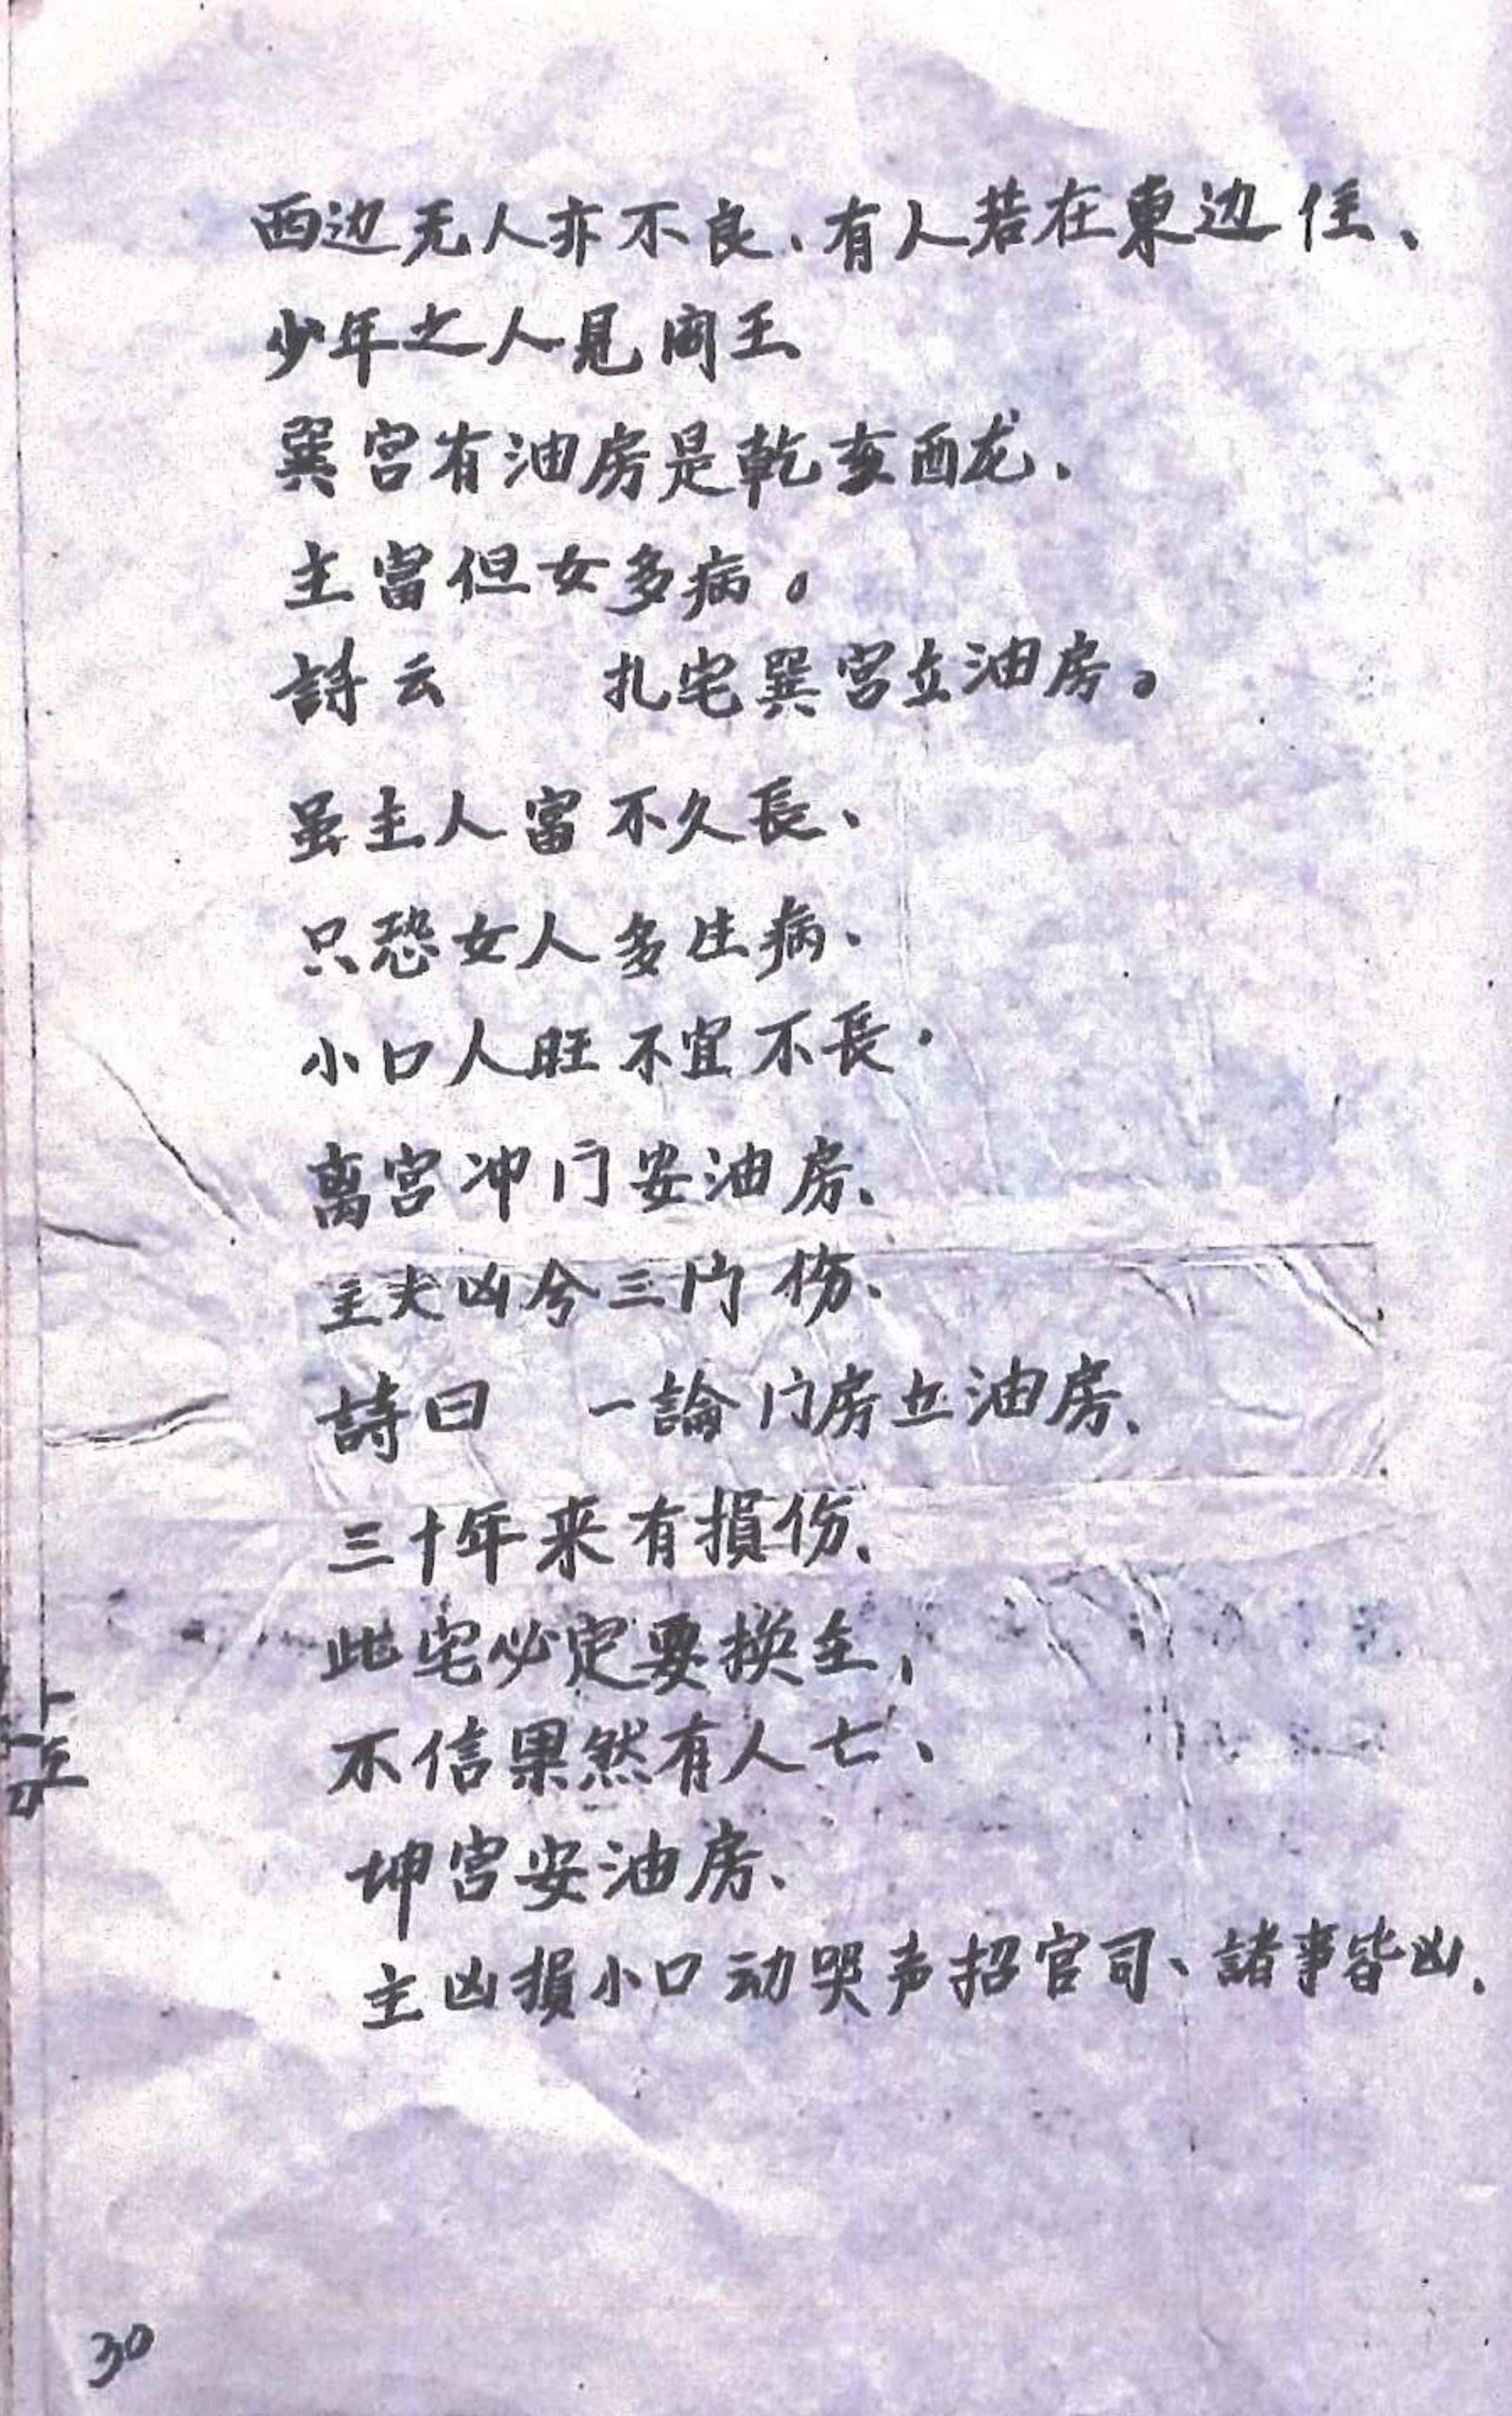 西边无人亦不良、有人若在東边住、
少年之人見阎王
巽宫有油房是乾亥酉龙、
主富但女多病。
詩云　扎宅巽宫立油房。
虽主人富不久長、
只恐女人多生病、
小口人旺不宜不長.
离宫冲门安油房、
主夫凶兮三门伤、
詩曰　一論门房立油房、
三十年来有損伤、
此宅必定要换主,
不信果然有人亡、
坤宫安油房、
主凶損小口动哭声招官司、諸事皆凶.
30